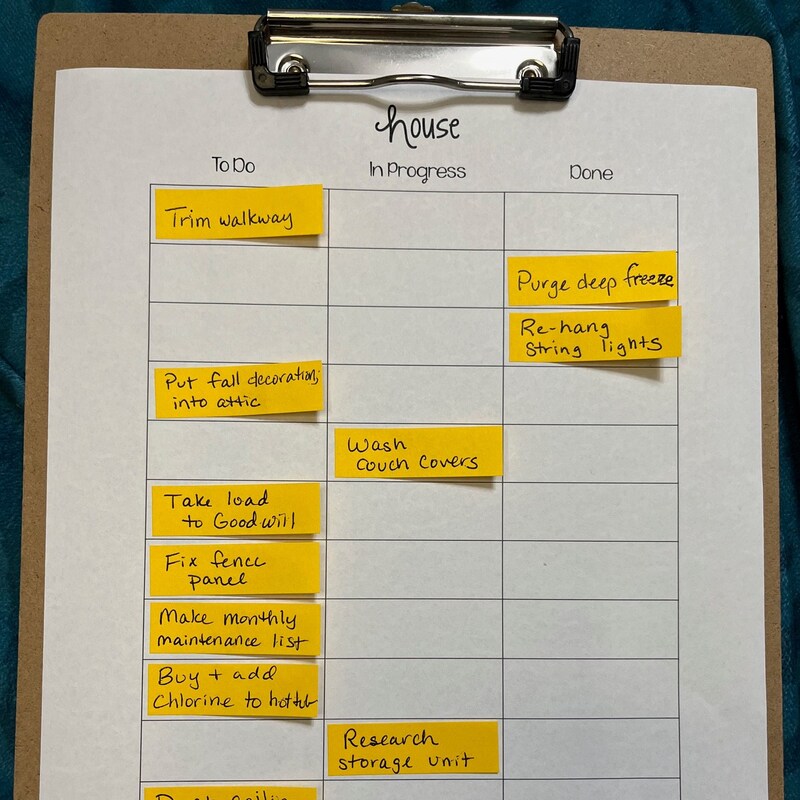 house
To Do In Progress Done
Trim walkway
Purge deep freeze
Re-hang
string lights
Put fall decorations
into attic
Wash
couch covers
Take load
to Goodwill
Fix fence
panel
Make monthly
maintenance list
Buy + add
Chlorine to hottub
Research
storage unit